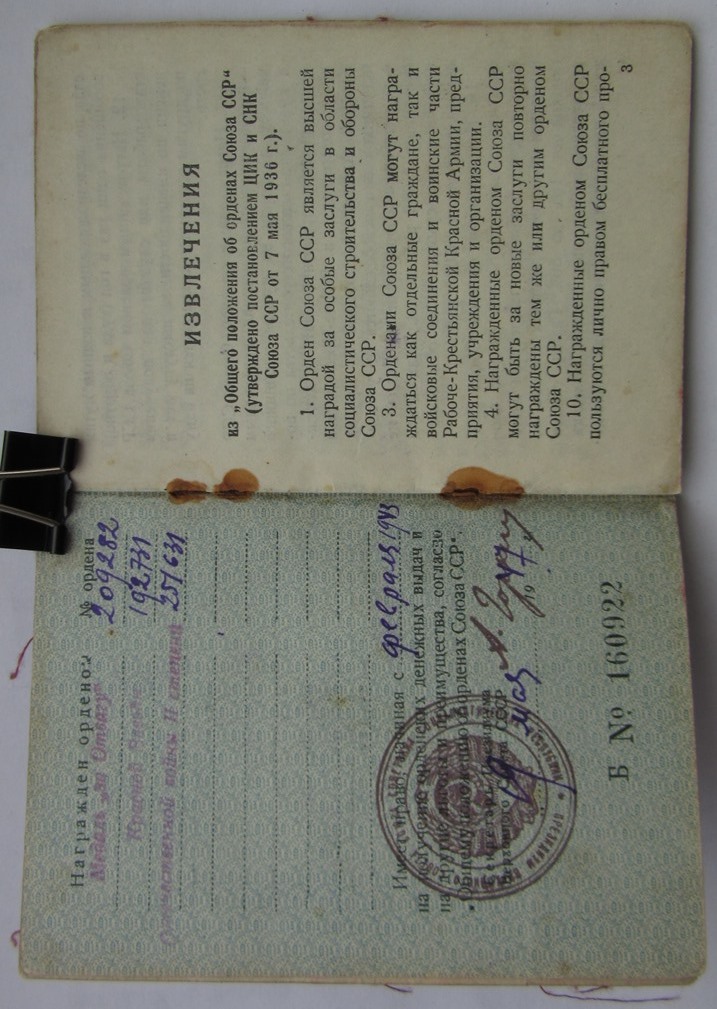 Награжден орденом № ордена
Медаль „За Отвагу" 209282
Красная Звезда 192731
Отечественной войны II степени 251631
Имеет право, начиная с февраля 1943
на получение орденских денежных выдач и
на другие льготы и преимущества, согласно
„Общему положению об орденах Союза ССР".
Секретарь Президиума
Верховного Совета СССР А. Горкин
мая 19
Б № 160922
ИЗВЛЕЧЕНИЯ
из „Общего положения об орденах Союза ССР"
(утверждено постановлением ЦИК и СНК
Союза ССР от 7 мая 1936 г.).
1. Орден Союза ССР является высшей
наградой за особые заслуги в области
социалистического строительства и обороны
Союза ССР.
3. Орденами Союза ССР могут награ-
ждаться как отдельные граждане, так и
войсковые соединения и воинские части
Рабоче-Крестьянской Красной Армии, пред-
приятия, учреждения и организации.
4. Награжденные орденом Союза ССР
могут быть за новые заслуги повторно
награждены тем же или другим орденом
Союза ССР.
10. Награжденные орденом Союза ССР
пользуются лично правом бесплатного про-
3